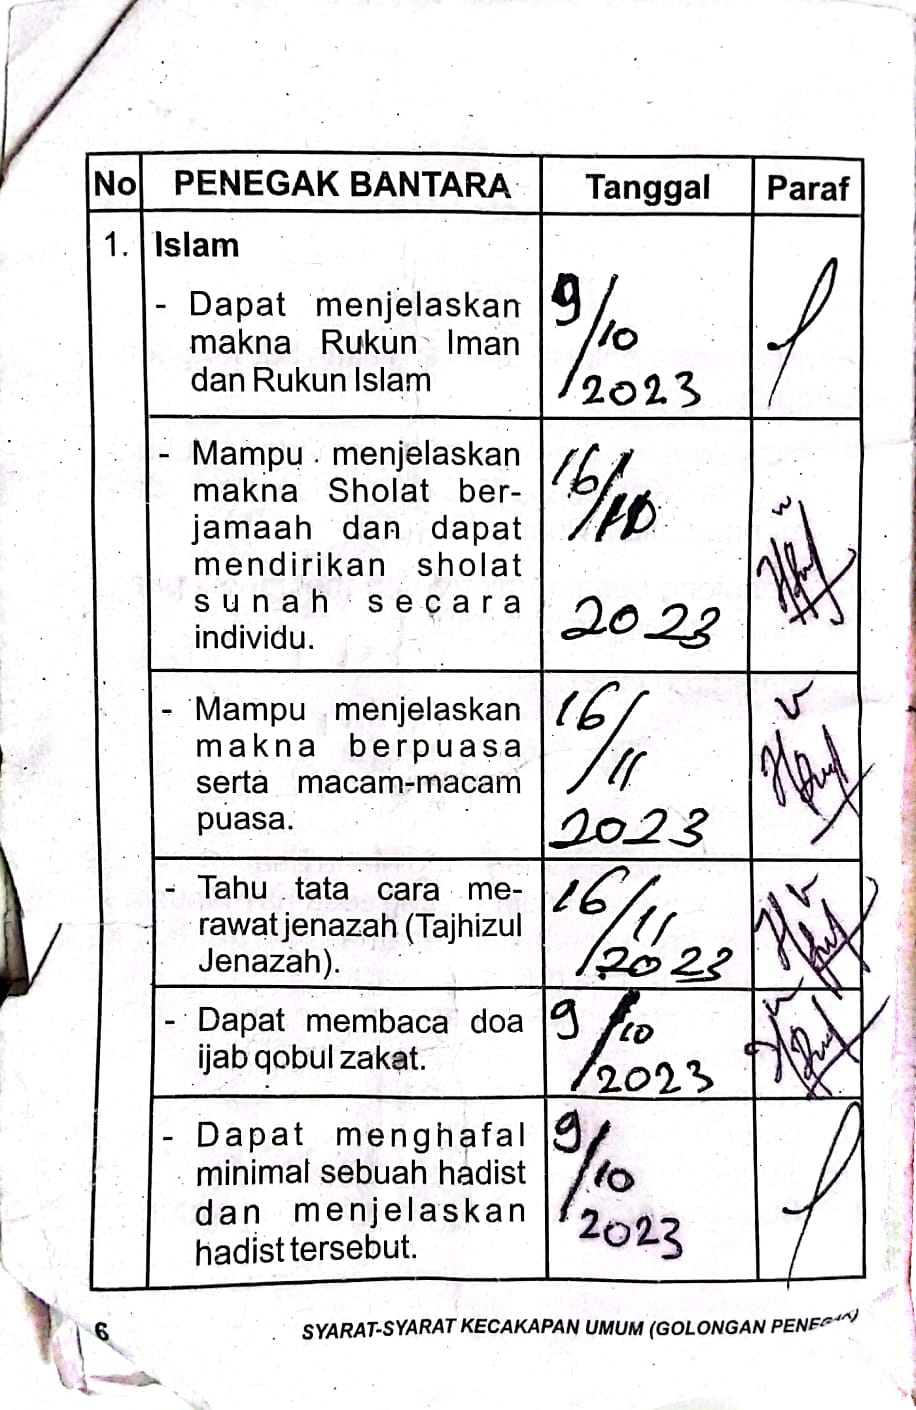 No PENEGAK BANTARA Tanggal Paraf
1. Islam
- Dapat menjelaskan
makna Rukun Iman
dan Rukun Islam
9/10
/2023
- Mampu menjelaskan
makna Sholat ber-
jamaah dan dapat
mendirikan sholat
sunah secara
individu.
16/10
2023
- Mampu menjelaskan
makna berpuasa
serta macam-macam
puasa.
16/11
2023
- Tahu tata cara me-
rawat jenazah (Tajhizul
Jenazah).
16/11
/2023
- Dapat membaca doa
ijab qobul zakat.
9/10
/2023
- Dapat menghafal
minimal sebuah hadist
dan menjelaskan
hadist tersebut.
9/10
/2023
6 SYARAT-SYARAT KECAKAPAN UMUM (GOLONGAN PENEGAK)